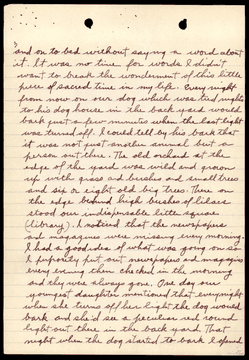 and on to bed without saying a word about
it. It was no time for words I didn't
want to break the wonderment of this little
piece of sacred time in my life. Every night
from now on our dog which was tied nights
to his dog house in the back yard would
bark just a few minutes when the last light
was turned off. I could tell by his bark that
it was not just another animal but a
person out there. The old orchard at the
edge of the yard was wild and grown
up with grass and bushes and small trees
and six or eight old big trees. There on
the edge behind high bushes of lilacs
stood our indispensable little square
(library). I noticed that the newspapers
and magazines were missing every morning.
I had a good idea of what was going on so
I purposly put out newspapers and magazins
every evening then checked in the morning
and they were always gone. One day our
youngest daughter mentioned that every night
when she turns off her light the dog would
bark and she'd see a peculiar red round
light out there in the back yard. That
night when the dog started to bark I opened